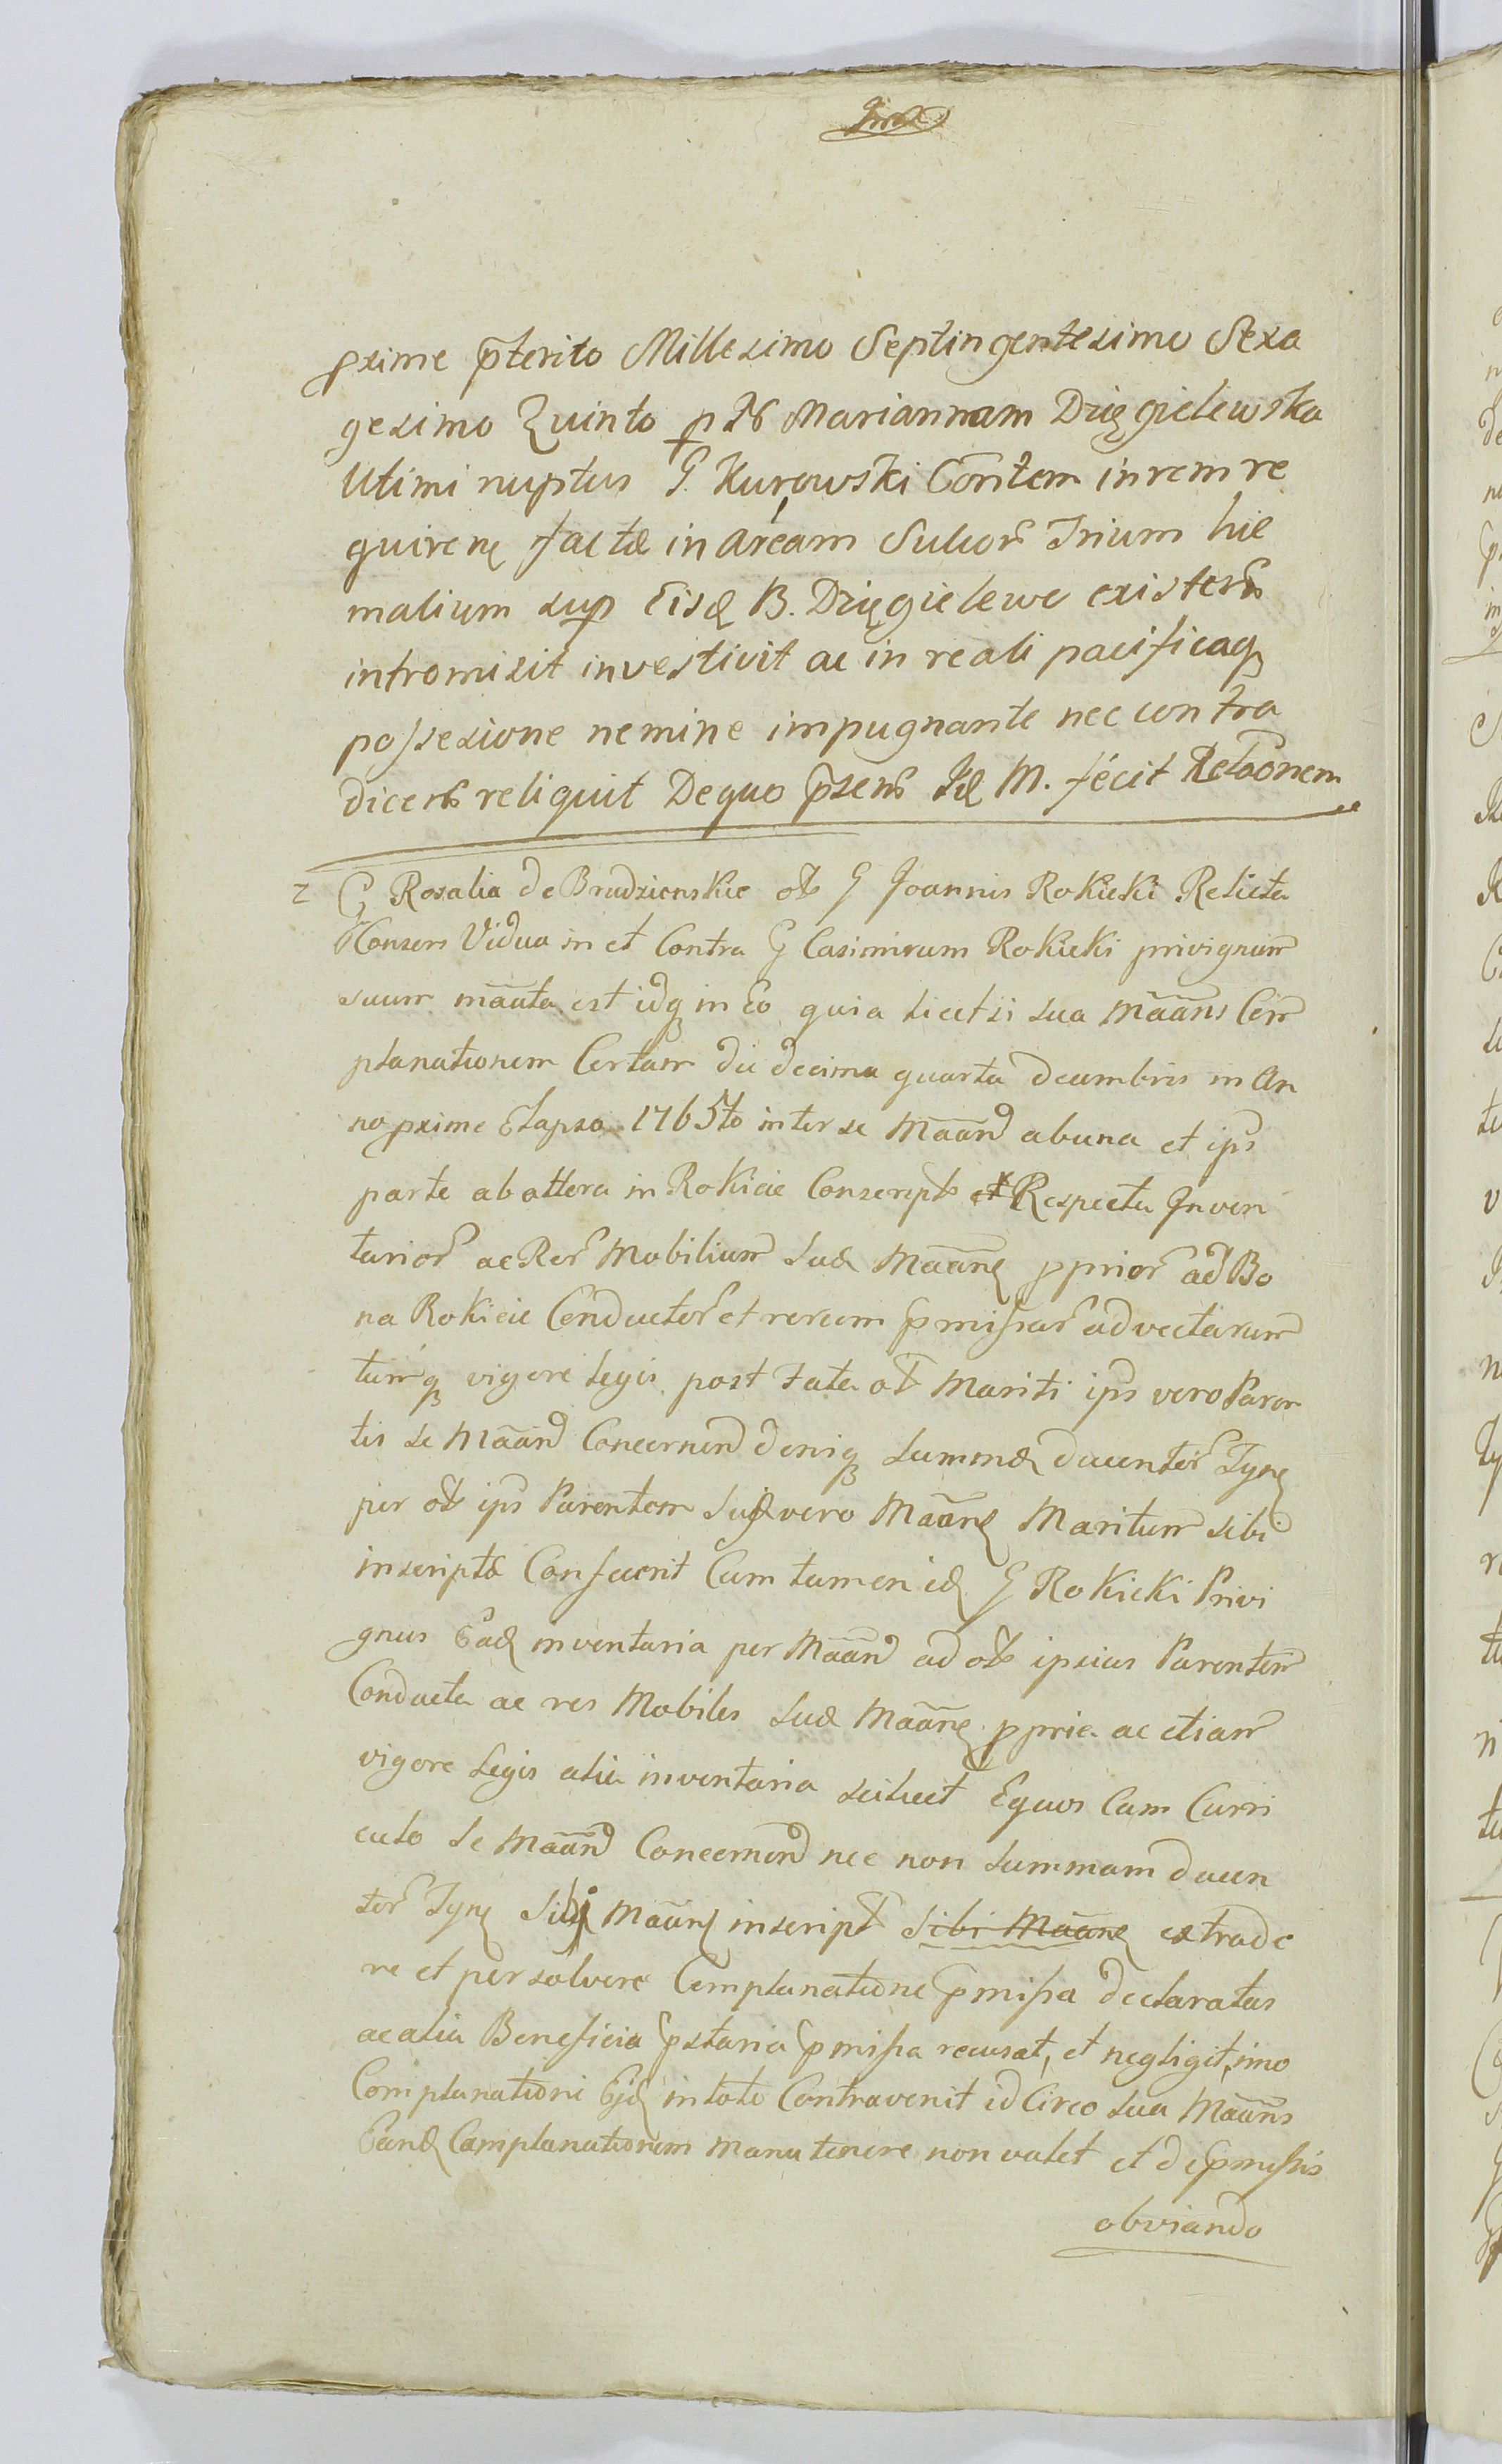 pxime pterito Millesimo Septingentesimo Sexa
gesimo Quinto p Mariannam Dzięgielewska
Utimi nuptus G. Kurowski Contem in rem re
quirenȩ factã in aream Sulcor Trium hie
malium sup Eisđ B. Dzięgielewo existen
intromisit investivit ac in reali pacificaq
possesione nemine impugnante nec contra
dicen reliquit De quo psens M. fecit Relaōnem
2 G Rosalia de Brudzienskie ol G Joannis Rokicki Relicta
Consors Vidua in et Contra G Casimirum Rokicki privignum
suum māāta est idq in Eo quia licet si sua Māāns Com
planationem Certam die decima quarta decembris in An
no pxime Elapso 1765to inter se Māānd ab una et ips
parte ab altera in Rokicie Conscript et Respectu Inven
tarior ac Rer Mobilium suæ Māānȩ pprior ad Bo
na Rokicie Conductor et rerum pmissar advectarum
tumq vigore legis post Fata ol Mariti ips vero Paren
tis se Māānd Concernend deniq summæ ducentor Tynȩ
per ol ips Parentem suæ vero Māānȩ Maritum sibi
inscriptæ Confecerit Cum tamen idȩ G Rokicki Privi
gnus Eadȩ inventaria per Māānd ad ol ipsius Parentem
Conducta ac res Mobiles suæ Māānȩ ppria ac etiam
vigore Legis alia inventaria scilicet Equos Cum Curri
culo se Māānd Concernend nec non summam ducen
tor Tynȩ Sibi Māānȩ inscript sibi Māānȩ extrade
re et persolvere Complanatione pmissa declaratas
ac alia Beneficia pstaria pmissa recusat, et negligit, imo
Complanationi Ejdȩ in toto Contravenit id Circo sua Māāns
Eandȩ Complanationem manu tenere non valet et de pmissis
obviando